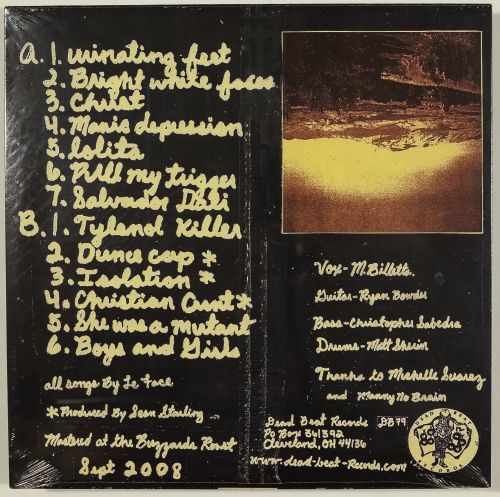 A. 1. urinating feet
2. Bright white faces
3. Christ
4. Manis depression
5. lolita
6. Pull my trigger
7. Salvador Dali
B. 1. Tylenol Killer
2. Dunce cap *
3. Isolation *
4. Christian Cunt *
5. She was a mutant
6. Boys and Girls
all songs By Le Face
* Produced By Sean Starling
Mastered at the Buzzards Roost
Sept 2008
Vox - M. Billetts
Guitar - Ryan Bowdes
Bass - Christopher Sabedra
Drums - Matt Sheim
Thanks to Michelle Suarez
and Manny No Brain
Dead Beat Records DB79
Po Box 361392
Cleveland, OH 44136
www.dead-beat-Records.com
DEAD BEAT
RECORDS